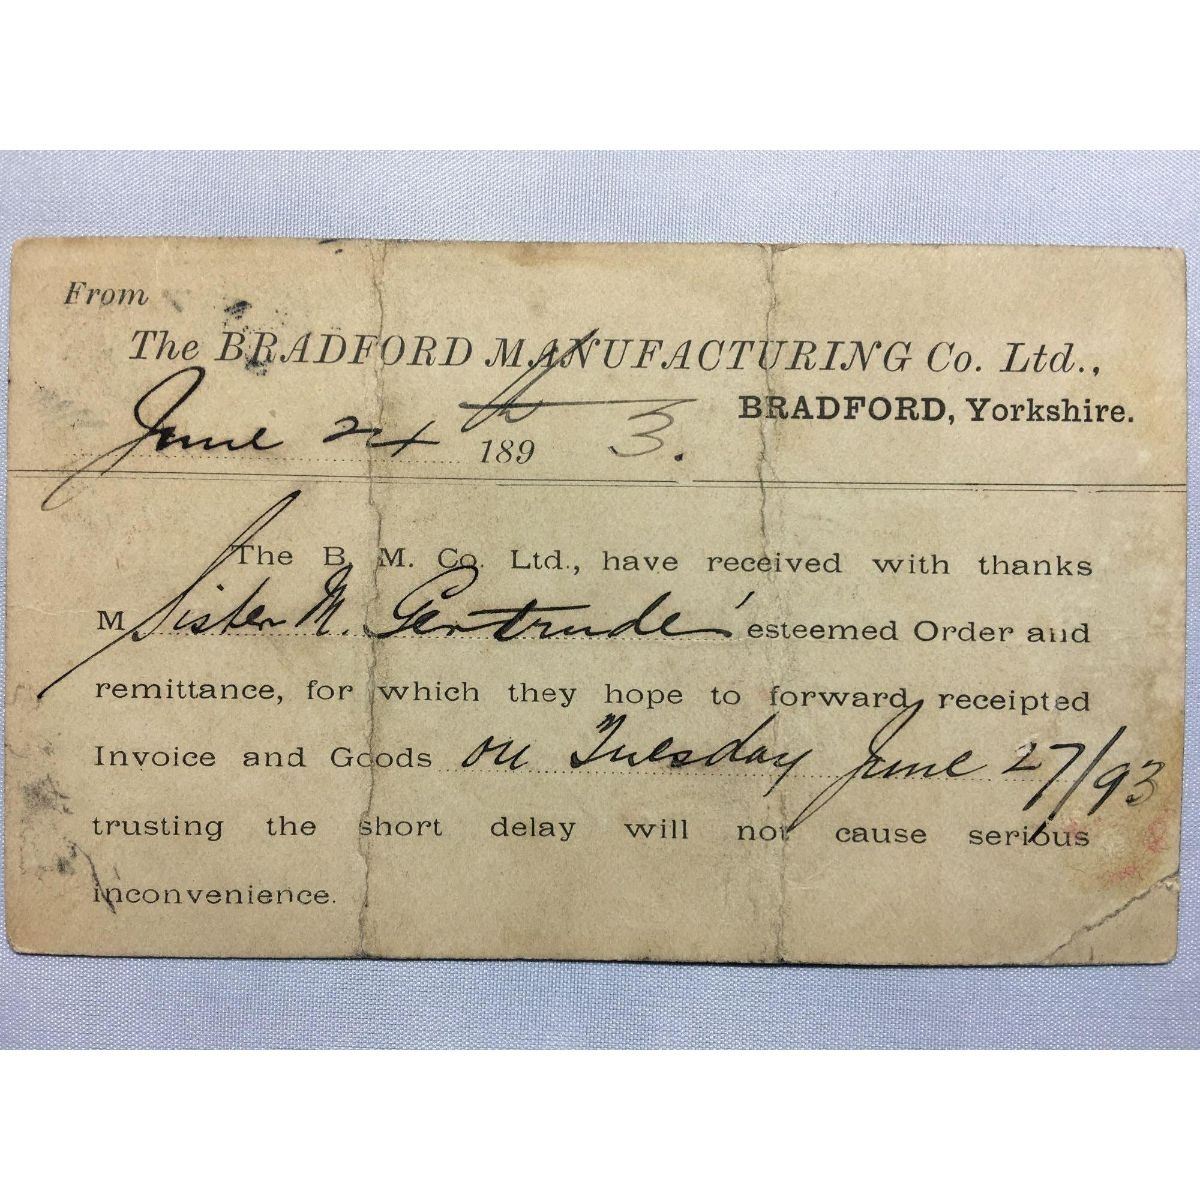 From
The BRADFORD MANUFACTURING Co. Ltd.,
BRADFORD, Yorkshire.
June 24th 1893.
The B. M. Co. Ltd., have received with thanks
M Sister M. Gertrude' esteemed Order and
remittance, for which they hope to forward receipted
Invoice and Goods on Tuesday June 27/93
trusting the short delay will not cause serious
inconvenience.